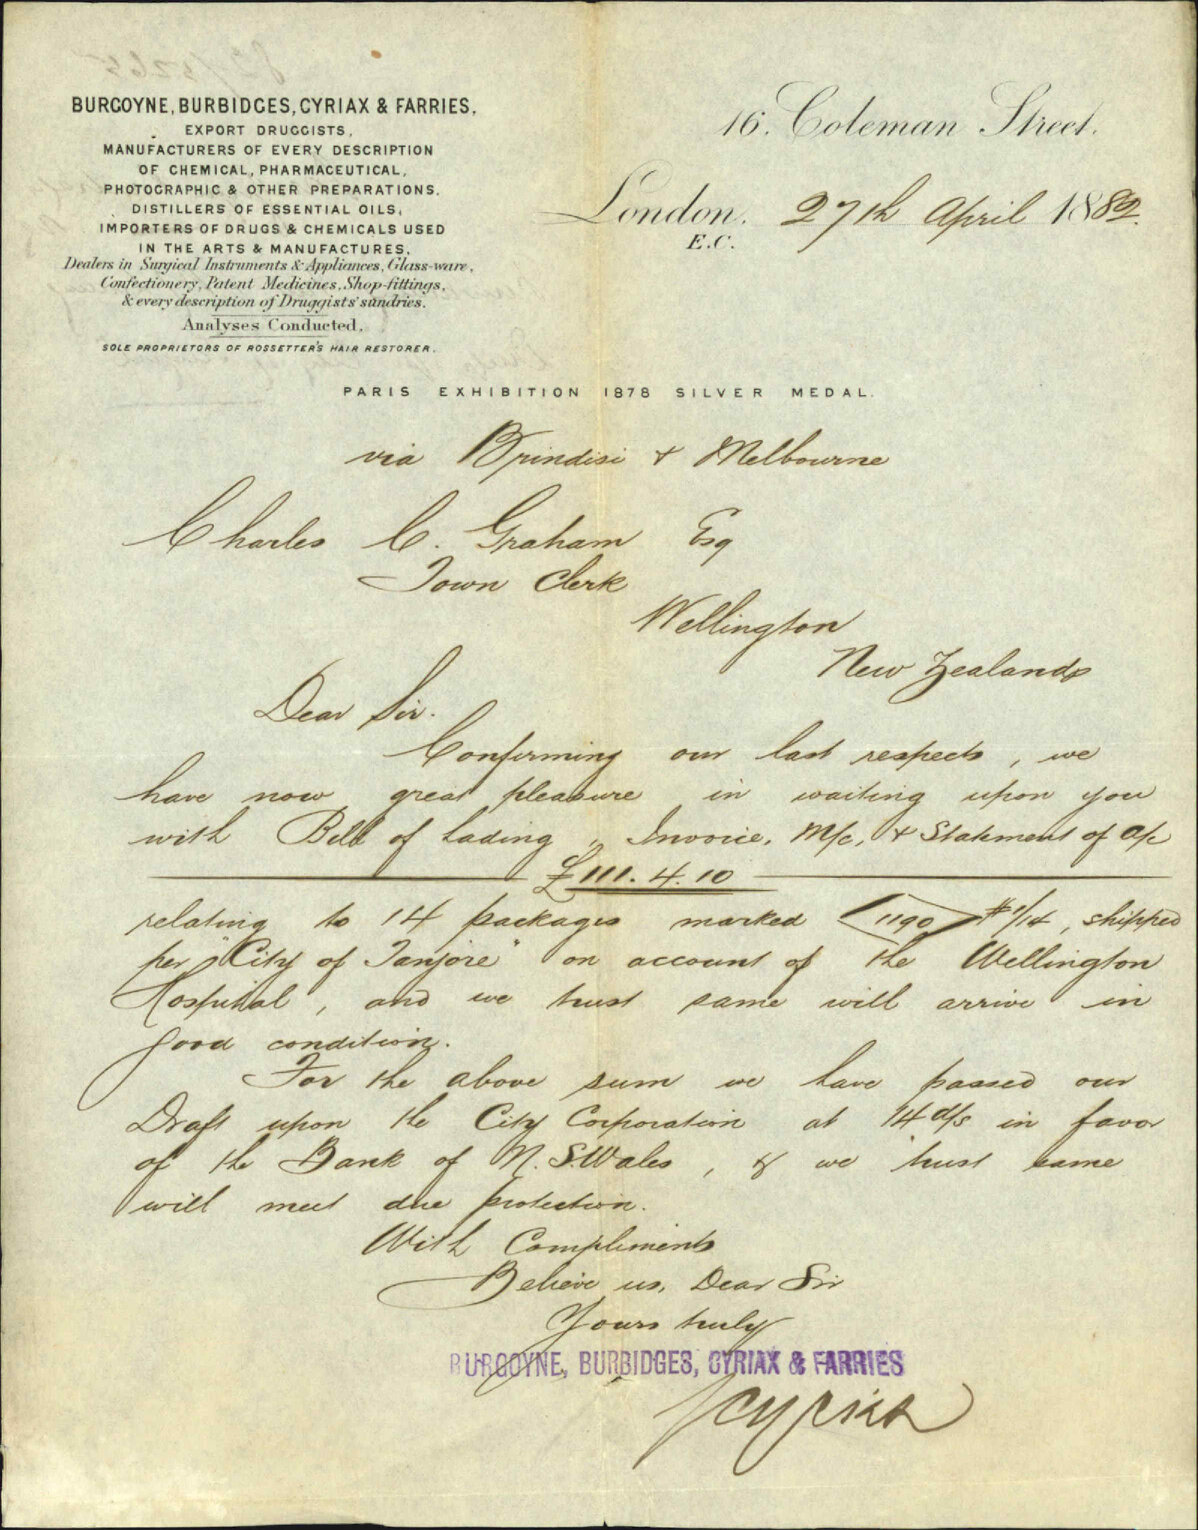 BURGOYNE, BURBIDGES, CYRIAX & FARRIES,
EXPORT DRUGGISTS,
MANUFACTURERS OF EVERY DESCRIPTION
OF CHEMICAL, PHARMACEUTICAL,
PHOTOGRAPHIC & OTHER PREPARATIONS.
DISTILLERS OF ESSENTIAL OILS,
IMPORTERS OF DRUGS & CHEMICALS USED
IN THE ARTS & MANUFACTURES,
Dealers in Surgical Instruments & Appliances, Glass-ware,
Confectionery, Patent Medicines, Shop-fittings,
& every description of Druggists' sundries.
Analyses Conducted.
SOLE PROPRIETORS OF ROSSETTER'S HAIR RESTORER.
16. Coleman Street.
London. 27th April 1882.
E.C.
PARIS EXHIBITION 1878 SILVER MEDAL.
via Brindisi & Melbourne
Charles C. Graham Esq
Town Clerk
Wellington
New Zealand
Dear Sir.
Confirming our last respects, we
have now great pleasure in waiting upon you
with Bill of Lading, Invoice, M/c, & Statement of a/c
£111.4.10
relating to 14 packages marked 1190 # 1/14, shipped
per "City of Tanjore" on account of the Wellington
Hospital, and we trust same will arrive in
good condition.
For the above sum we have passed our
Draft upon the City Corporation at 14 d/s in favor
of the Bank of N. S. Wales, & we trust same
will meet due protection.
With Compliments
Believe us, Dear Sir
Yours truly
BURGOYNE, BURBIDGES, CYRIAX & FARRIES
Cyriax